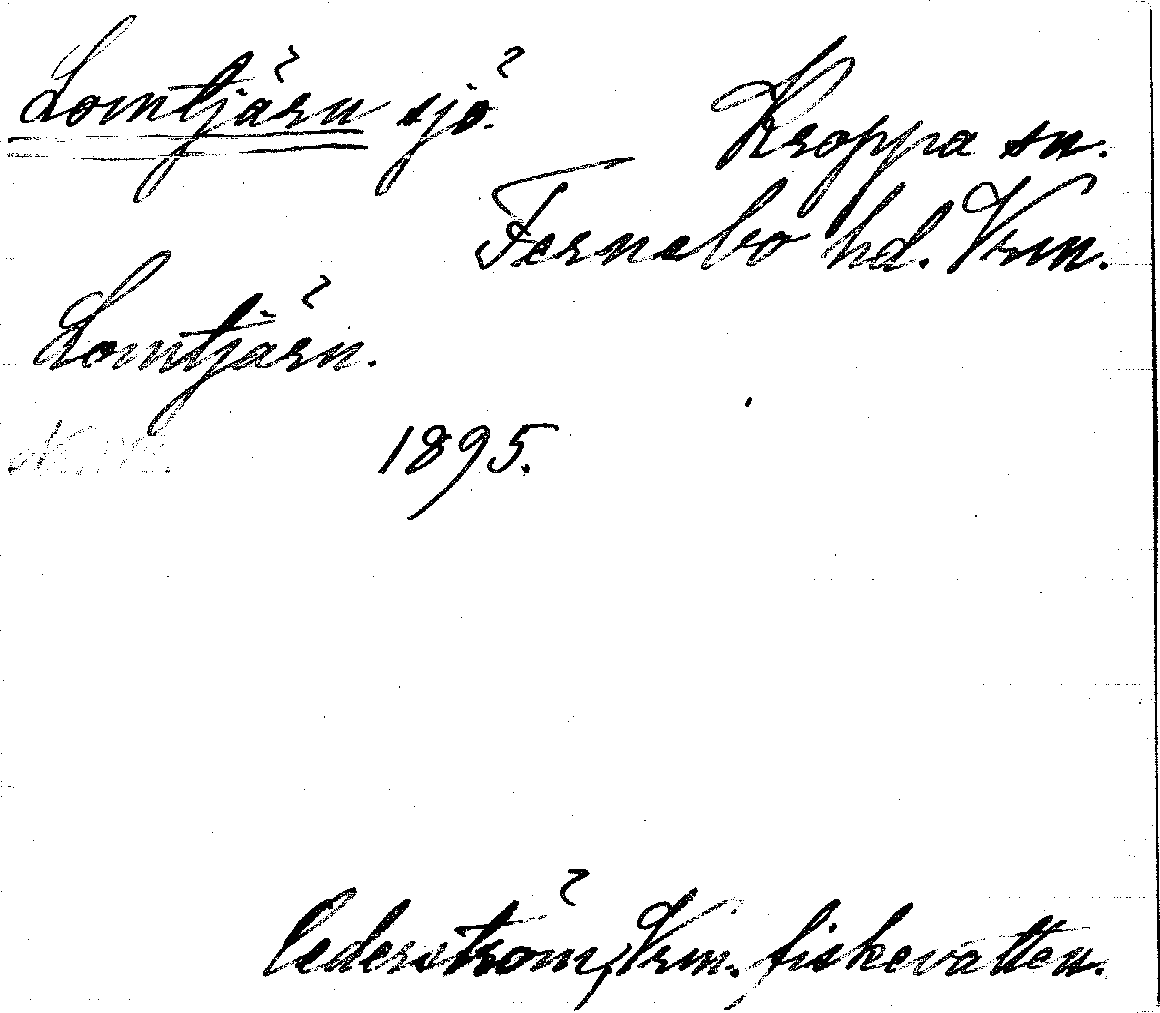 Lomtjärn sjö.
Kroppa sn.
Fernebo hd. Vrm.
Lomtjärn.
1895.
Cederström, Vrm. fiskevatten.